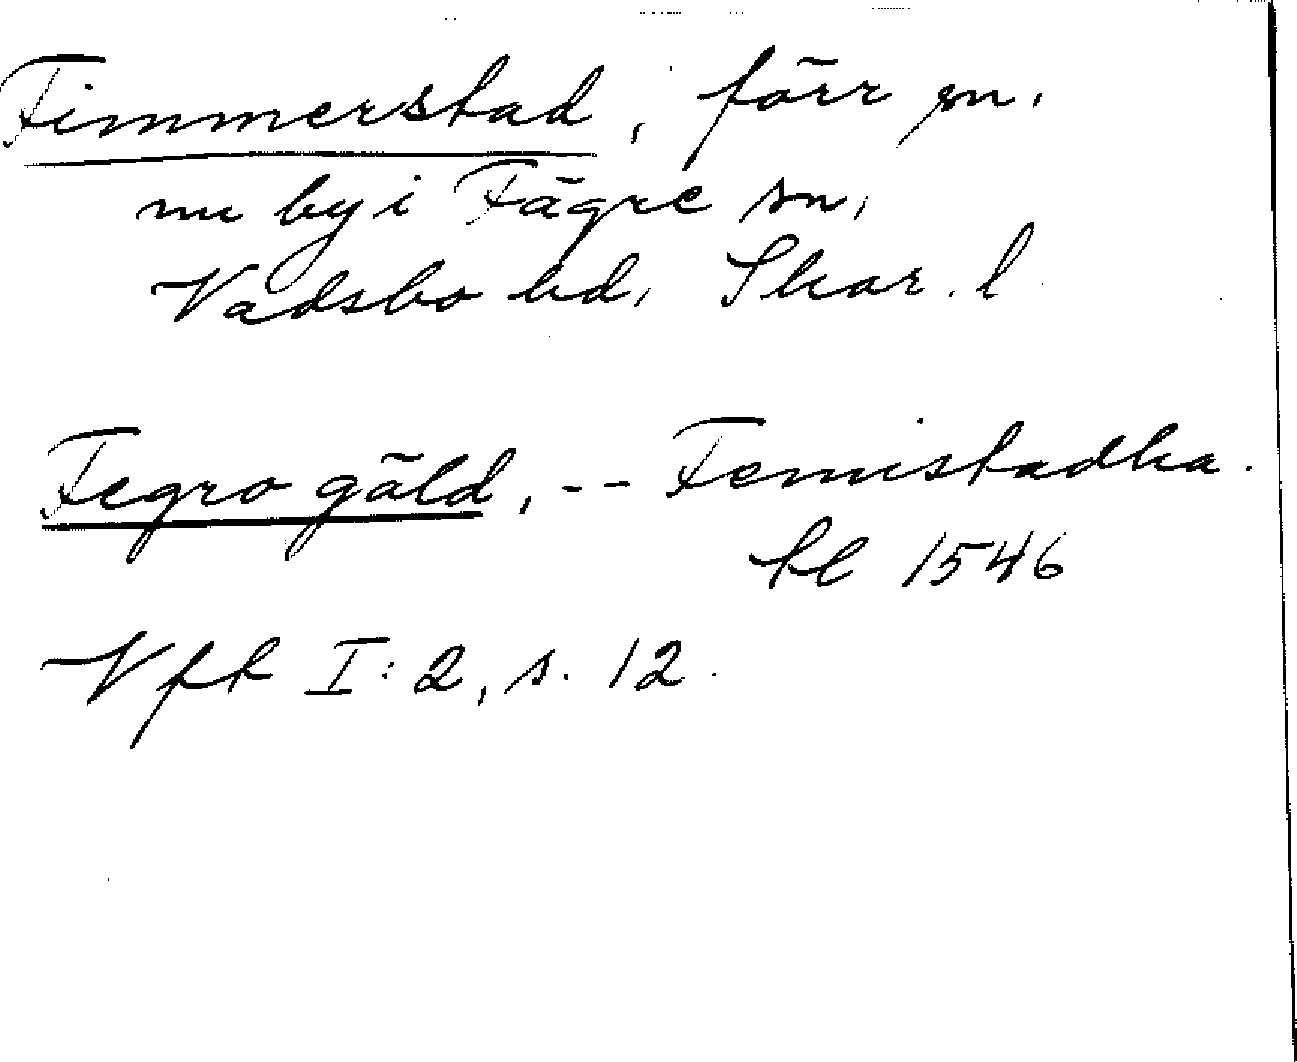 Fimmerstad, förr sn.
nu by i Fägre sn,
Vadsbo hd, Skar. l
Fegro gäld, -- Femistadha.
kl 1546
Vfk I:2, s. 12.